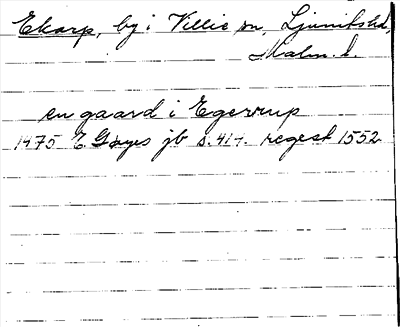 Ekarp, by i Villie sn, Ljunits hd,
Malm. l.
en gaard i Egerrup
1475 E. Gøyes jb s. 414. regest 1552